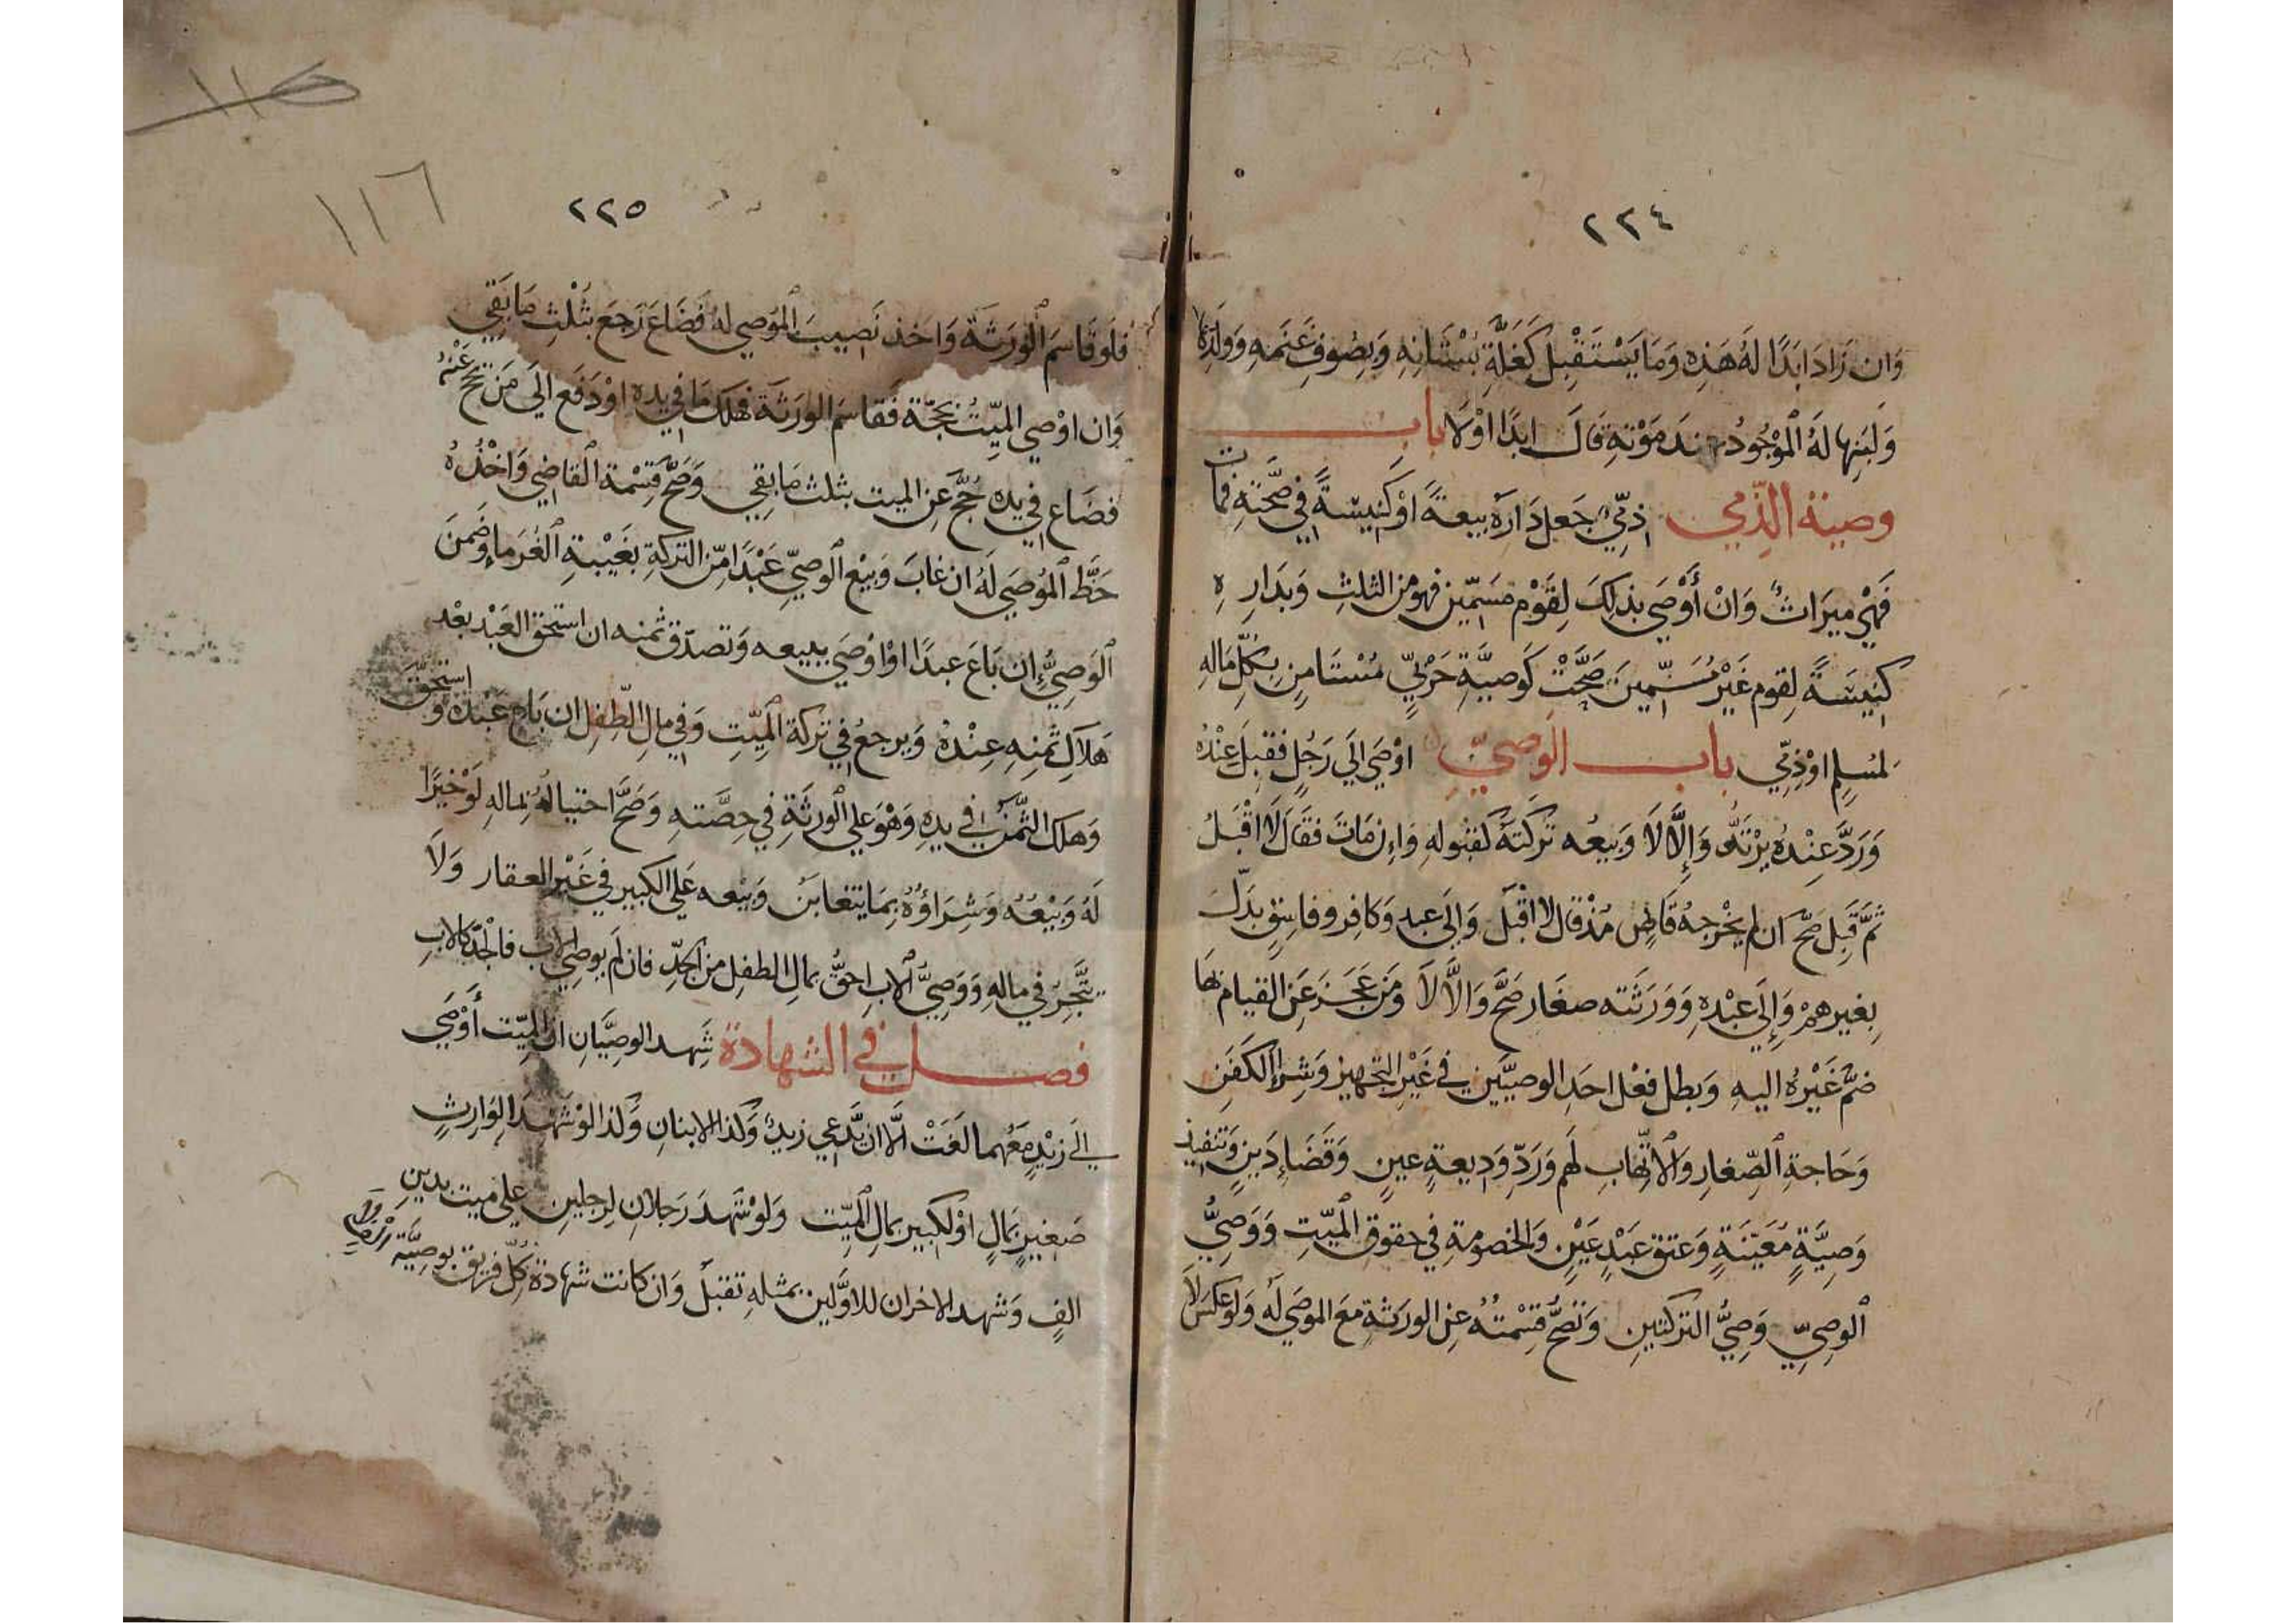 ٢٢٤
وَان زَادَ ابَدًا لَهُ هَذِهِ وَمَا يَسْتَقْبِل كَغَلَّةِ بُسْتَانِهِ وَبِصُوفِ غَنَمِهِ وَوَلَدِهَا
وَلَبَنِهَا لَهُ الْمَوْجُودُ عِندَ مَوْتِهِ قَالَ ابَدًا اوْ لَا باب
وصية الذِّمي ذِمِّيٌّ جَعَلَ دَارَهُ بِيعَةً اوْ كَنِيسَةً فِي صِحَّتِهِ فَمَات
فَهِيَ مِيرَاثٌ وَانْ أَوْصَى بِذلِكَ لِقَوْم مسَمِّين فهو من الثلثِ وَبِدَارِهِ
كَنِيسَةً لِقوم غَيْرِ مُسَمِّينَ صَحَّتْ كَوصِيَّةِ حَرْبِيّ مُسْتَامِنٍ بِكُلِّ مَالِهِ
لمُسْلِمٍ اوْ ذِمِّي باب الْوَصِيّ اوْصَى الَى رَجُلٍ فَقَبِلَ عِنْدَهُ
وَرَدَّ عِنْدَهُ يَرْتَدُّ وَإِلَّا لَا وَبَيعُه تَرِكَتَهُ كَقبُولِهِ وَاِن مَاتَ فَقَالَ لَا اقْبَلُ
ثُمَّ قَبِلَ صَحَّ ان لم يخْرِجهُ قَاضٍ مُذْ قَالَ لا اقْبَل وَالَى عبدٍ وَكافِرٍ وفاسِقٍ بَدَّلَ
بِغيرهمْ وَإِلَى عَبْدِهِ وَوَرَثَته صغَار صَحَّ وَالَّا لَا وَمَن عَجَزَ عَنِ القيام بهَا
ضَمَّ غَيْرَهُ اليهِ وَبطل فعْل احَدِ الوصيَّينِ في غَيْرِ التجهيز وَشِرَاءِ الكَفَنِ
وَحَاجةِ الصِّغارِ وَالاتِّهابِ لَهم وَرَدِّ وَدِيعةِ عينٍ وَقَضَاءِ دَينٍ وَتنفيذِ
وَصِيَّةٍ مُعَيَّنَةٍ وَعتق عَبْدٍ عَيْنٍ وَالخصومةِ في حقوق الميّتِ وَوَصِيُّ
الوصِيِّ وَصِيُّ التركتينِ وَتَصحُّ قِسْمتُهُ عنِ الورَثةِ مَعَ الموصَى لَه وَلو عكسَ لَا
٢٢٥
١١٦
فلو قاسَمَ الْورَثةَ وَاخذَ نَصِيبَ الْمُوصي لهُ فَضَاعَ رَجعَ بثُلْثِ مَا بَقِي
وَان اوْصي الميّتُ بحجّة فَقاسَمَ الورَثةَ فهلكَ مَا في يده اوْ دَفَع الَى مَنْ يحجّ عَنْهُ
فضَاع في يده حُجَّ عَن الميت بثلث مَا بقي وَصَحَّ قسْمة الْقاضِي وَاخْذُهُ
حَظَّ الْمُوصَي لَهُ ان غابَ وَبَيْع الْوصيّ عَبْدًا مّن التركةِ بغَيْبةِ الْغُرَماءِ وَضمنَ
الْوَصِيُّ إِن بَاعَ عبدًا اوْ اوْصَى ببيعه وَتصدّق بثمنه ان استحق العَبْد بعْد
هَلاَكِ ثَمنِهِ عِنْدهُ وَيرجعُ في تركة الميّتِ وَفي مال الطِّفلِ ان بَاع عَبْدَهُ وَاستحقّ
وَهلك الثَّمَن في يدِهِ وَهْوَ علي الْورثَةِ في حِصَّتهِ وَصَحَّ احتيالهُ بمالهِ لَوْ خَيرًا
لَهُ وَبَيْعُهُ وَشِرَاؤُهُ بِمَا يتغابَنُ وَبيْعه علي الكَبيرِ في غَيْر العقار وَلَا
يتَّجِرُ في مالهِ وَوَصِيُّ الْاب احقُّ بمالِ الطفل من الجدِّ فان لم يوصِ الابُ فالجدّ كالابِ
فصل في الشهادة شَهد الوصِيَّانِ ان الميّت أَوْصَى
الَي زَيْدٍ مَعَهما لغَتْ الَّا ان يدَّعي زيدٌ وَكذا الابنانِ وَكذا لوْ شَهْدَ الوَارِثِ
صَغيرٍ بمَالٍ اوْ لكبيرٍ بمالِ الميّتِ وَلوْ شَهدَ رَجلانِ لرجلينِ علي ميت بدينِ
الفٍ وَشهد الاخران للاوَّلين بمثلهِ تقبلُ وَان كانت شهادَة كلِّ فريقٍ بوصِيَّةِ